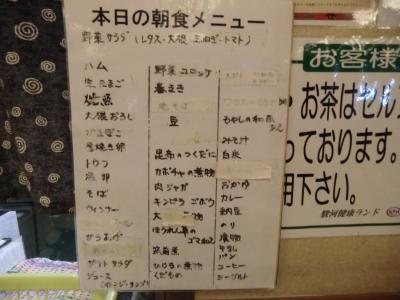 本日の朝食メニュー
野菜サラダ(レタス・大根・玉ねぎ・トマト)
ハム
生たまご
焼魚
大根おろし
厚焼き卵
トウフ
温卵
そば
ウィンナー
からあげ
ポテトサラダ
ジュース
(オレンジ・リンゴ)
野菜コロッケ
春まき
焼そば
豆
昆布のつくだに
カボチャの煮物
肉ジャガ
キンピラゴボウ
ほうれん草の
ゴマ和え
筑前煮
ひじきの煮物
くだもの
もやしの和風
みそ汁
白米
おかゆ
カレー
納豆
のり
漬物
牛乳
パン
コーヒー
ヨーグルト
お客様
お茶はセル
っております。
用下さい。
駿河健康ランド